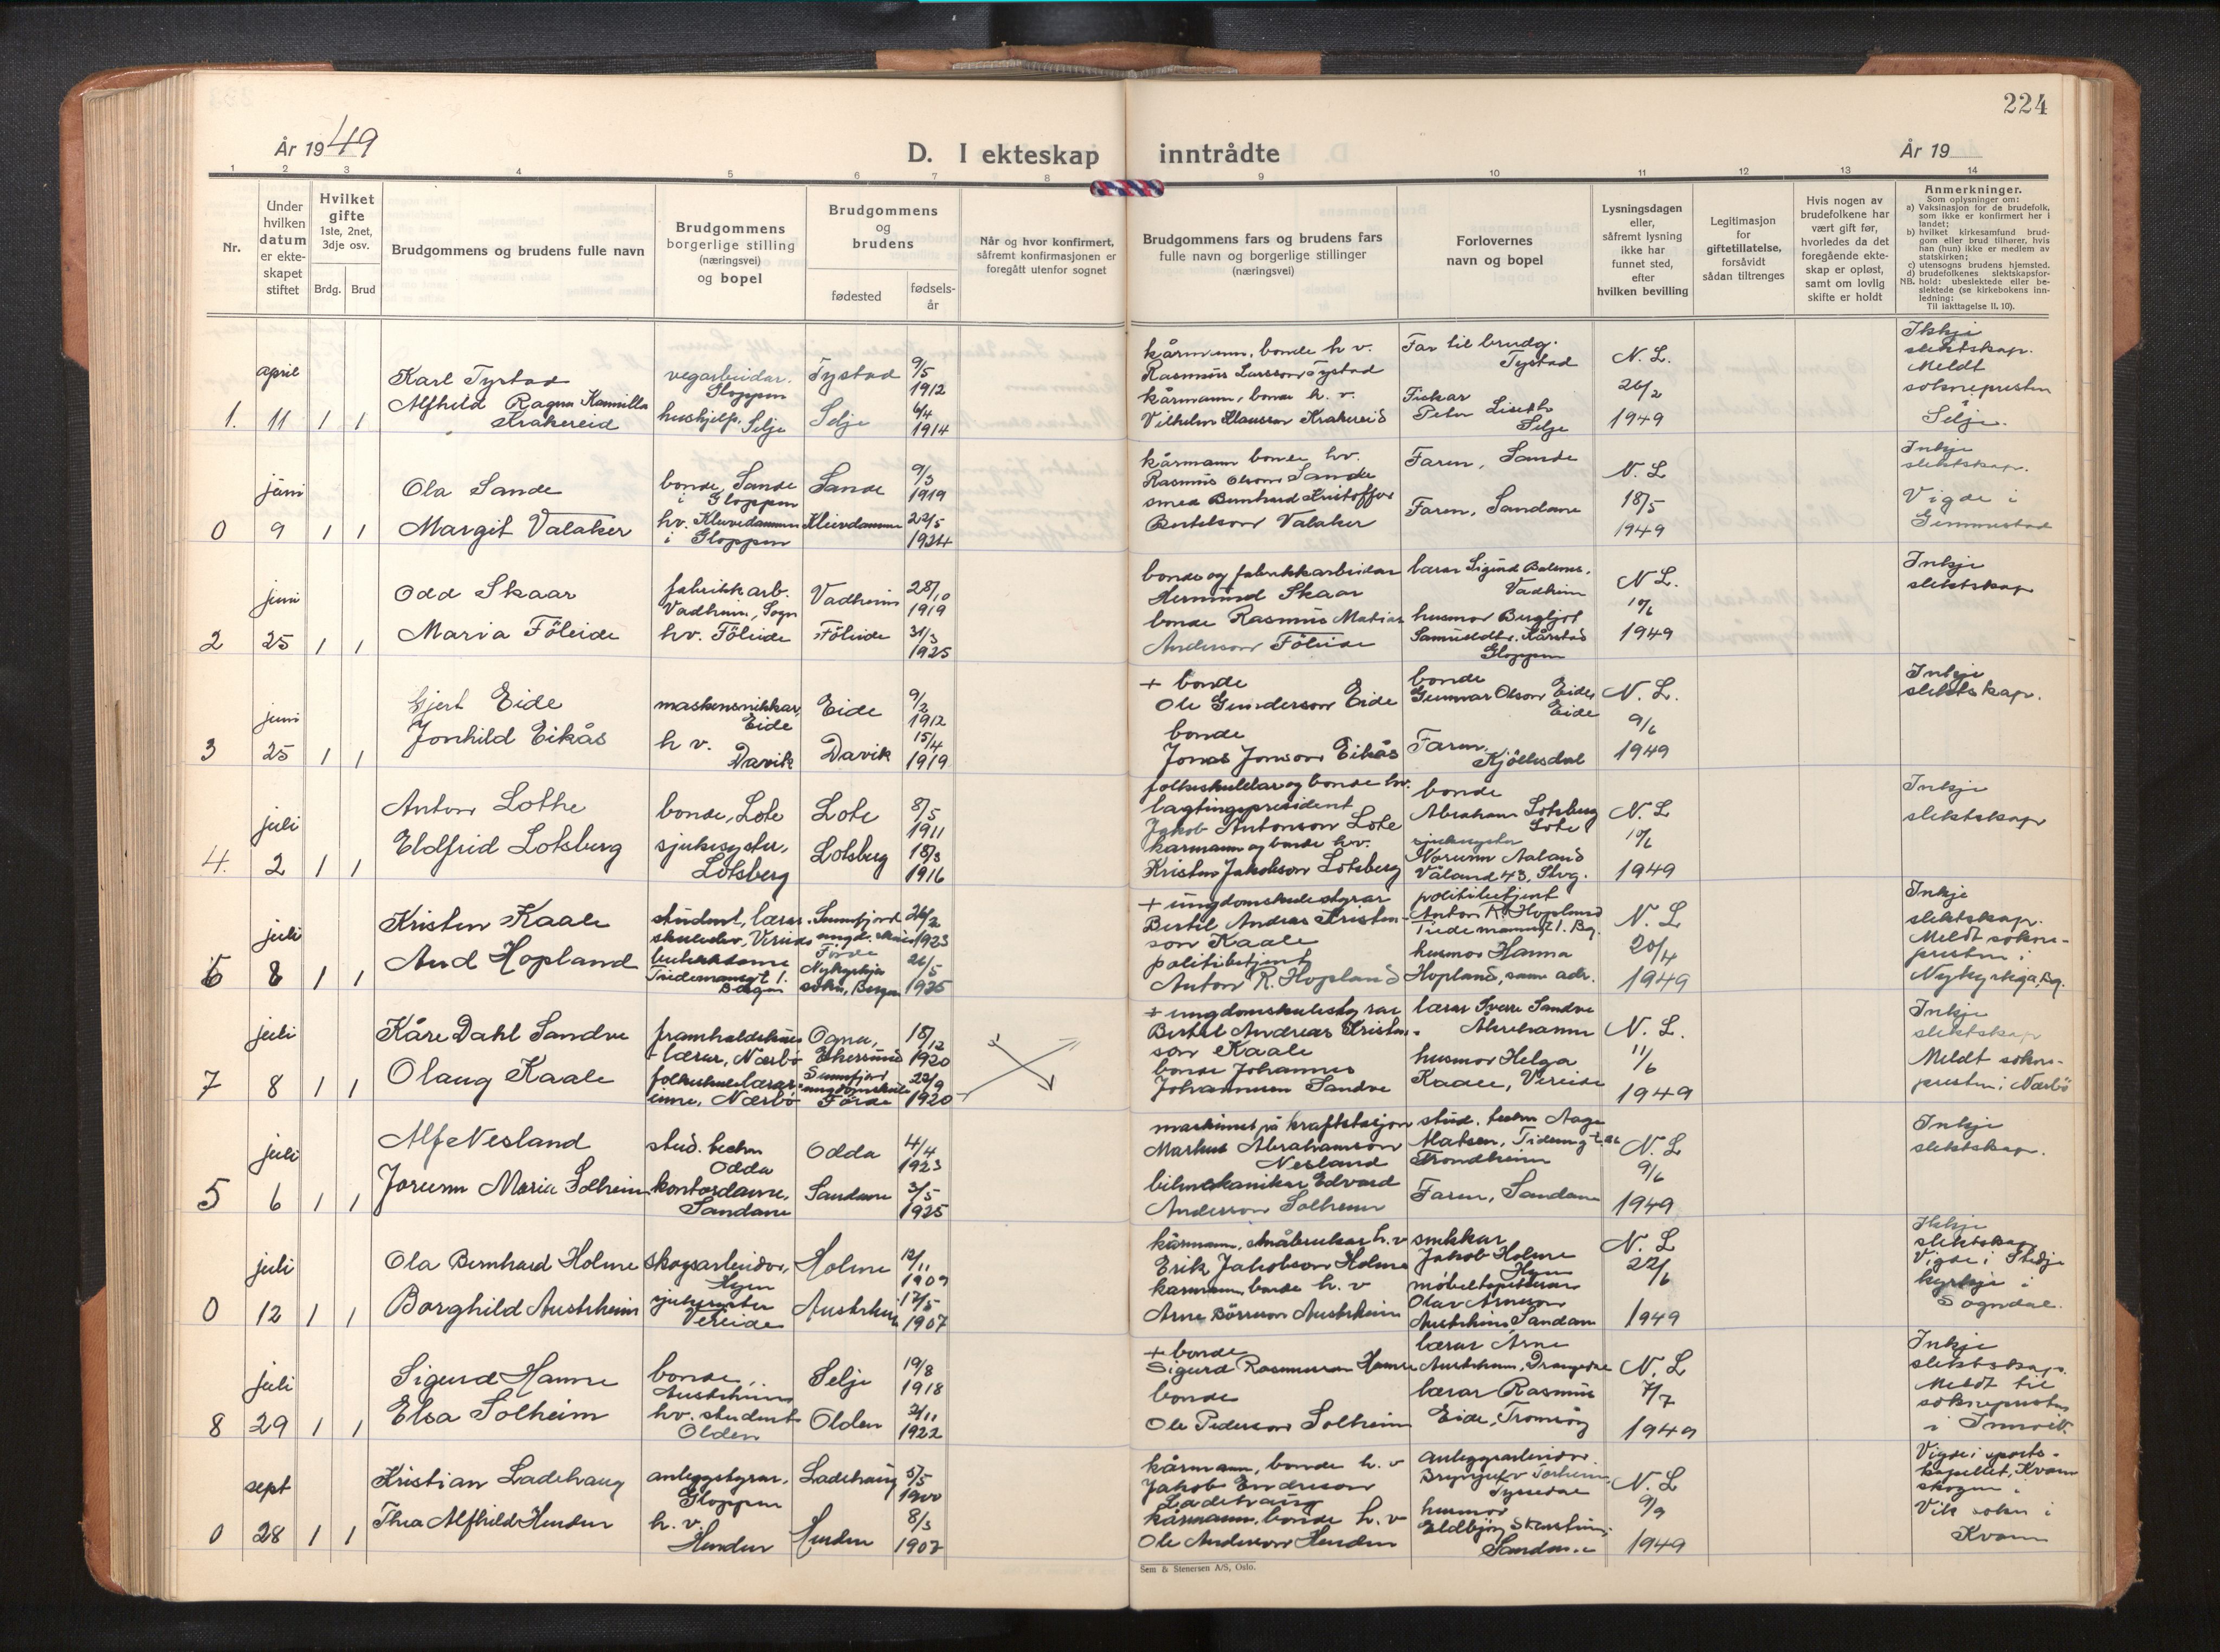 224
År 1949
D. I ekteskap inntrådte
År 19
1 2 3 4 5 6 7 8 9 10 11 12 13 14
Nr.
Under hvilken datum er ekteskapet stiftet
Hvilket gifte 1ste, 2net, 3dje osv.
Brdg. Brud
Brudgommens og brudens fulle navn
Brudgommens borgerlige stilling (næringsvei) og bopel
Brudgommens og brudens
fødested
fødselsår
Når og hvor konfirmert, såfremt konfirmasjonen er foregått utenfor sognet
Brudgommens fars og brudens fars fulle navn og borgerlige stillinger (næringsvei)
Forlovernes navn og bopel
Lysningsdagen eller, såfremt lysning ikke har funnet sted, efter hvilken bevilling
Legitimasjon for giftetillatelse, forsåvidt sådan tiltrenges
Hvis nogen av brudefolkene har vært gift før, hvorledes da det foregående ekteskap er opløst, samt om lovlig skifte er holdt
Anmerkninger.
Som oplysninger om:
a) Vaksinasjon for de brudefolk, som ikke er konfirmert her i landet;
b) hvilket kirkesamfund brudgom eller brud tilhører, hvis han (hun) ikke er medlem av statskirken;
c) utensogns brudens hjemsted.
d) brudefolkenes slektskapsforhold: ubeslektede eller beslektede (se kirkebokens innledning:
NB.
Til iakttagelse II. 10).
1. april 11 1 1
Karl Tystad
Alfhild Ragna Kamilla Krakereid
vegarbeidar. Gloppen
hushjelp. Selje
Tystad 9/5 1912
Selje 6/4 1914
kårmann, bonde h v.
Rasmus Larsson Tystad
kårmann, bonde h. v.
Vilhelm Klausson Krakereid
Far til brudg. Tystad
Fiskar
Peter Liseth Selje
N. L. 26/2 1949
Ikkje slektskap. Meldt soknepresten i Selje.
0 juni 9 1 1
Ola Sande
Margit Valaker
bonde, Sande i Gloppen
hv. Kleivdammen i Gloppen
Sande 9/3 1919
Kleivdammen 22/5 1924
kårmann bonde hv.
Rasmus Olsson Sande
smed Bernhard Kristoffer
Bertelson Valaker
Faren, Sande
Faren, Sandane
N. L 18/5 1949
Inkje slektskap.
Vigde i Gimmestad
2 juni 25 1 1
Odd Skaar
Maria Föleide
fabrikkarb. Vadheim, Sogn
hv. Föleide
Vadheim 28/10 1919
Föleide 31/3 1925
bonde og fabrikkarbeidar
Hermund Skaar
bonde Rasmus Matias
Anderson Föleide
lærar Sigurd
Vadheim
husmor Bergljot
Samueldtr. Kårstad
Gloppen
N L. 10/6 1949
Inkje slektskap
3 juni 25 1 1
Gjert Eide
Jonhild Eikås
maskinsnikkar, Eide
h v. Davik
Eide 9/2 1912
Davik 15/4 1919
+ bonde
Ole Gunderson Eide
bonde
Jonas Jonson Eikås
bonde
Gunnar Olson Eide, Eide
Faren, Kjöllsdal
N. L. 9/6 1949
Inkje slektskap.
4. juli 2 1 1
Anton Lothe
Eldfrid Lotsberg
bonde, Lote
sjukesyster, Lotsberg
Lote 8/5 1911
Lotsberg 18/3 1916
folkeskulelærar og bonde hv.
lagtingspresident
Jakob Antonson Lote
kårmann og bonde hv.
Kristen Jakobson Lotsberg
bonde
Abraham Lotsberg Lote
sjukesyster
Norunn Aaland
Våland 43, Stvg.
N. L 10/6 1949
Inkje slektskap
6 juli 8 1 1
Kristen Kaale
Aud Hopland
student, lærar
Tiedemansgt 1. Bergen
Sunnfjord ungd. skule Förde 26/2 1923
Nykyrkja sokn, Bergen 26/5 1925
+ ungdomsskulestyrar
Bertil Andreas Kristenson Kaale
politibetjent
Anton R. Hopland
politibetjent
Anton R. Hopland
Tiedemannsgt 1. Bg.
husmor Hanna
Hopland, sam adr.
N. L 20/4 1949
Inkje slektskap. Meldt soknepresten i Nykyrkja, Bg.
7 juli 8 1 1
Kåre Dahl Sandve
Olaug Kaale
framhaldsskulelærar, Nærbö
folkeskulelærarinne, Nærbö
Ogna, Ekersund 18/12 1920
Sunnfjord ungdomsskule Förde 22/9 1920
+ ungdomsskulestyrar
Bertil Andreas Kristenson Kaale
bonde Johannes
Johannesen Sandve
lærar Svare Sandve
husmor Helga
Kaale, Vereide
N. L. 11/6 1949
Inkje slektskap
Meldt soknepresten i Nærbö
5 juli 6 1 1
Alf Nesland
Jorunn Maria Solheim
stud. techn Odda
kontordame, Sandane
Odda 4/4 1923
Sandane 3/5 1925
maskinist på kraftstasjon
Markus Abrahamson Nesland
bilmekanikar Edvard
Anderson Solheim
stud. techn Aage
Matsen,
Trondheim
Faren, Sandane
N. L 9/6 1949
Inkje slektskap.
0 juli 12 1 1
Ola Bernhard Holme
Borghild Austrheim
skogsarbeidar, Hyen
sjukesyster Vereide
Holme 12/11 1909
Austrheim 17/5 1907
kårmann, småbrukar h. v
Erik Jakobson Holme
kårmann, bonde h. v
Arne Börreson Austrheim
snikkar
Jakob Holme Hyen
møbeltapetserar
Olav Arneson
Austrheim Sandane
N. L 22/6 1949
Ikkje slektskap
Vigde i Stedje kyrkje i Sogndal.
8 juli 29 1 1
Sigurd Hamre
Elsa Solheim
bonde, Austrheim
hv. student Olden
Selje 19/8 1918
Olden 2/11 1922
+ bonde
Sigurd Rasmusson Hamre
bonde
Ole Pederson Solheim
lærar Arne
Austrheim, Drangedal
lærar Rasmus
Eide, Tromsö
N. L 7/7 1949
Inkje slektskap. Meldt til soknepresten i Innvik.
0 sept 28 1 1
Kristian Ladehaug
Thea Alfhild Henden
anleggstyrar, Gloppen
h. v. Henden
Ladehaug 5/5 1900
Henden 8/3 1907
kårmann, bonde h. v
Jakob Endreson
Ladehaug
kårmann, bonde h. v
Ole Anderson Henden
anleggsarbeidar
Brynjulv
Tyssedal
husmor
Eldbjörg
Sandane
N. L 9/9 1949
Vigde i sportskapellet, Kvamskogen i Vik sokn i Kvam
Sem & Stenersen A/S, Oslo.